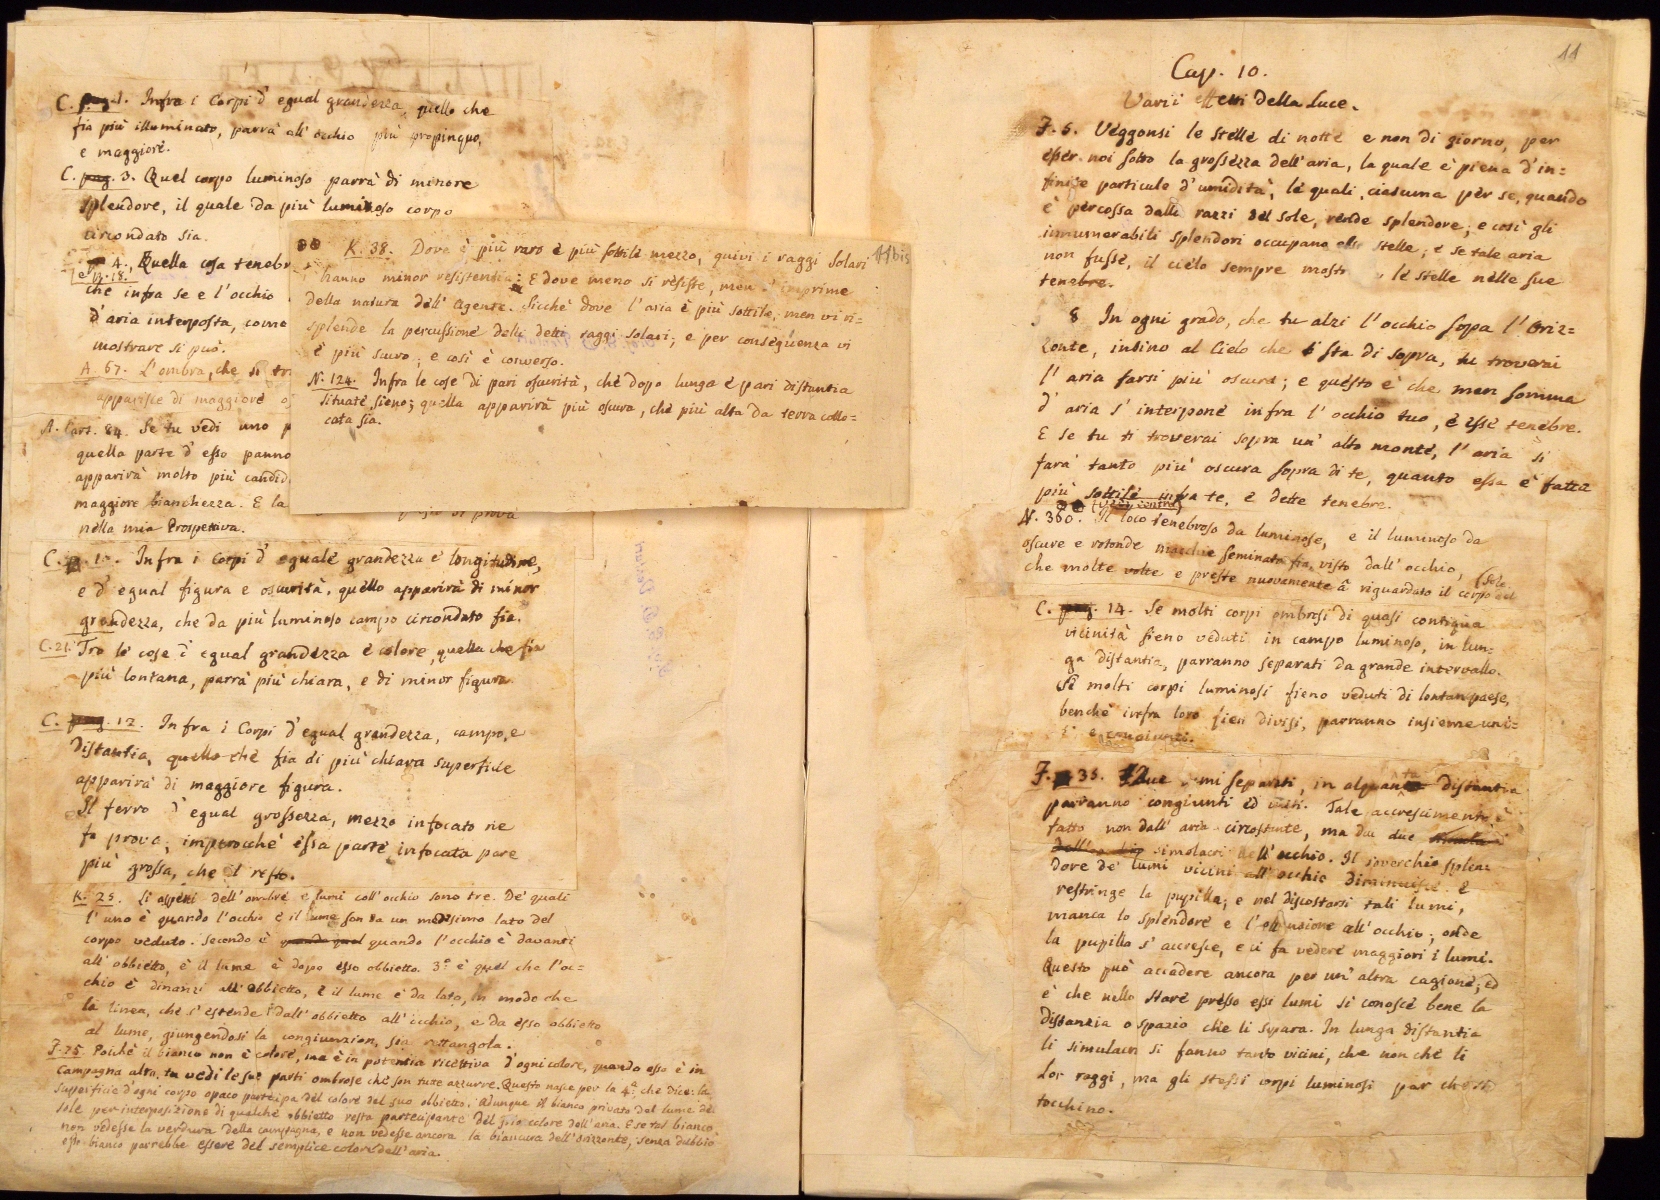 C. pag. 1. Infra i Corpi d' egual grandezza, quello che
fia più illuminato, parrà all' occhio più propinquo,
e maggiore.
C. pag. 3. Quel corpo luminoso parrà di minore
splendore, il quale da più luminoso corpo
circondato sia.
4. Quella cosa tenebr
e 13.18.
che infra se e l'occhio
d'aria interposta, come
mostrare si può.
A. 67. L'ombra, che si tr
apparisce di maggiore o
A. Cart. 84. Se tu vedi uno p
quella parte d' esso panno
apparirà molto più candid
maggiore bianchezza. E la
nella mia Prospettiva.
si prova
K. 38. Dove è più raro e più sottile mezzo, quivi i raggi solari
hanno minor resistentia: E dove meno si resiste, men s' imprime
della natura dell' Agente. Sicchè dove l' aria è più sottile, men vi ri=
splende la percussione delli detti raggi solari; e per conseguenza vi
è più scuro; e così è converso.
N. 124. Infra le cose di pari oscurità, che dopo lunga e pari distantia
situate sieno; quella apparirà più oscura, che più alta da terra collo=
cata sia.
11bis
C. p. 1. Infra i Corpi d' eguale grandezza e longitudine,
e d' egual figura e oscurità, quello apparirà di minor
grandezza, che da più luminoso campo circondato fia.
C. 21. Tra le cose d' egual grandezza e colore, quella che fia
più lontana, parrà più chiara, e di minor figura.
C. pag. 12. Infra i Corpi d' egual grandezza, campo, e
distantia, quello che fia di più chiara superficie
apparirà di maggiore figura.
Il ferro d' egual grossezza, mezzo infocato ne
fa prova, imperocchè essa parte infocata pare
più grossa, che il resto.
K. 25. Li aspetti dell' ombre e lumi coll' occhio sono tre. De' quali
l' uno è quando l'occhio e il lume son da un medesimo lato del
corpo veduto. Secondo è quando quel quando l'occhio è davanti
all' obbietto, e il lume è dopo esso obbietto. 3° è quel che l'oc=
chio è dinanzi all' obbietto, e il lume è da lato, in modo che
la linea, che s' estende dall' obbietto all' occhio, e da esso obbietto
al lume, giungendosi la congiunzion, sia rettangola.
F. 75. Poichè il bianco non è colore, ma è in potentia ricettiva d' ogni colore, quando esso è in
campagna alta, tu vedi le sue parti ombrose che son tutte azzurre. Questo nasce per la 4ª che dice: la
superficie d'ogni corpo opaco partecipa del colore del suo obbietto. Adunque il bianco privato del lume del
sole per interposizione di qualche obbietto resta partecipante del colore dell' aria. E se tal bianco
non vedesse la verdura della campagna, e non vedesse ancora la biancura dell' orizzonte, senza dubbio
esso bianco parrebbe essere del semplice colore dell' aria.
11
Cap. 10.
Varii effetti della Luce.
F. 5. Veggonsi le stelle di notte e non di giorno, per
esser noi sotto la grossezza dell' aria, la quale è piena d' in=
finite particule d' umidità, le quali, ciascuna per se, quando
è percossa dalli razzi del sole, rende splendore; e così gli
innumerabili splendori occupano esse stelle; e se tale aria
non fusse, il cielo sempre mostr le stelle nelle sue
tenebre.
8 In ogni grado, che tu alzi l' occhio sopra l' Oriz=
zonte, insino al Cielo che ti sta di sopra, tu troverai
l' aria farsi più oscura; e questo è che men somma
d' aria s' interpone infra l' occhio tuo, e esse tenebre.
E se tu ti troverai sopra un' alto monte, l' aria si
farà tanto più oscura sopra di te, quanto essa è fatta
più sottile infra te, e dette tenebre.
N. 360. Il loco tenebroso da luminose, e il luminoso da
oscure e rotonde macchie seminato fia visto dall' occhio,
che molte volte e preste nuovamente à riguardato il corpo del
(Sole.
C. pag. 14. Se molti corpi ombrosi di quasi contigua
vicinità sieno veduti in campo luminoso, in lun=
ga distantia, parranno separati da grande intervallo.
Se molti corpi luminosi fieno veduti di lontan paese,
benchè infra loro sien divisi, parranno insieme uni=
ti e congiunti.
F. 35. Due lumi separati, in alquanta distantia
parranno congiunti ed uniti. Tale accrescimento è
fatto non dall' aria circostante, ma da due
simolacri dell' occhio. Il soverchio splen=
dore de' lumi vicini all' occhio diminuisce e
restringe la pupilla; e nel discostarsi tali lumi,
manca lo splendore e l' offusione all' occhio; onde
la pupilla s' accresce, e ci fa vedere maggiori i lumi.
Questo può accadere ancora per un' altra cagione; ed
è che nello stare presso essi lumi si conosce bene la
distanzia o spazio che li separa. In lunga distantia
li simulacri si fanno tanto vicini, che non che li
lor raggi, ma gli stessi corpi luminosi par che si
tocchino.